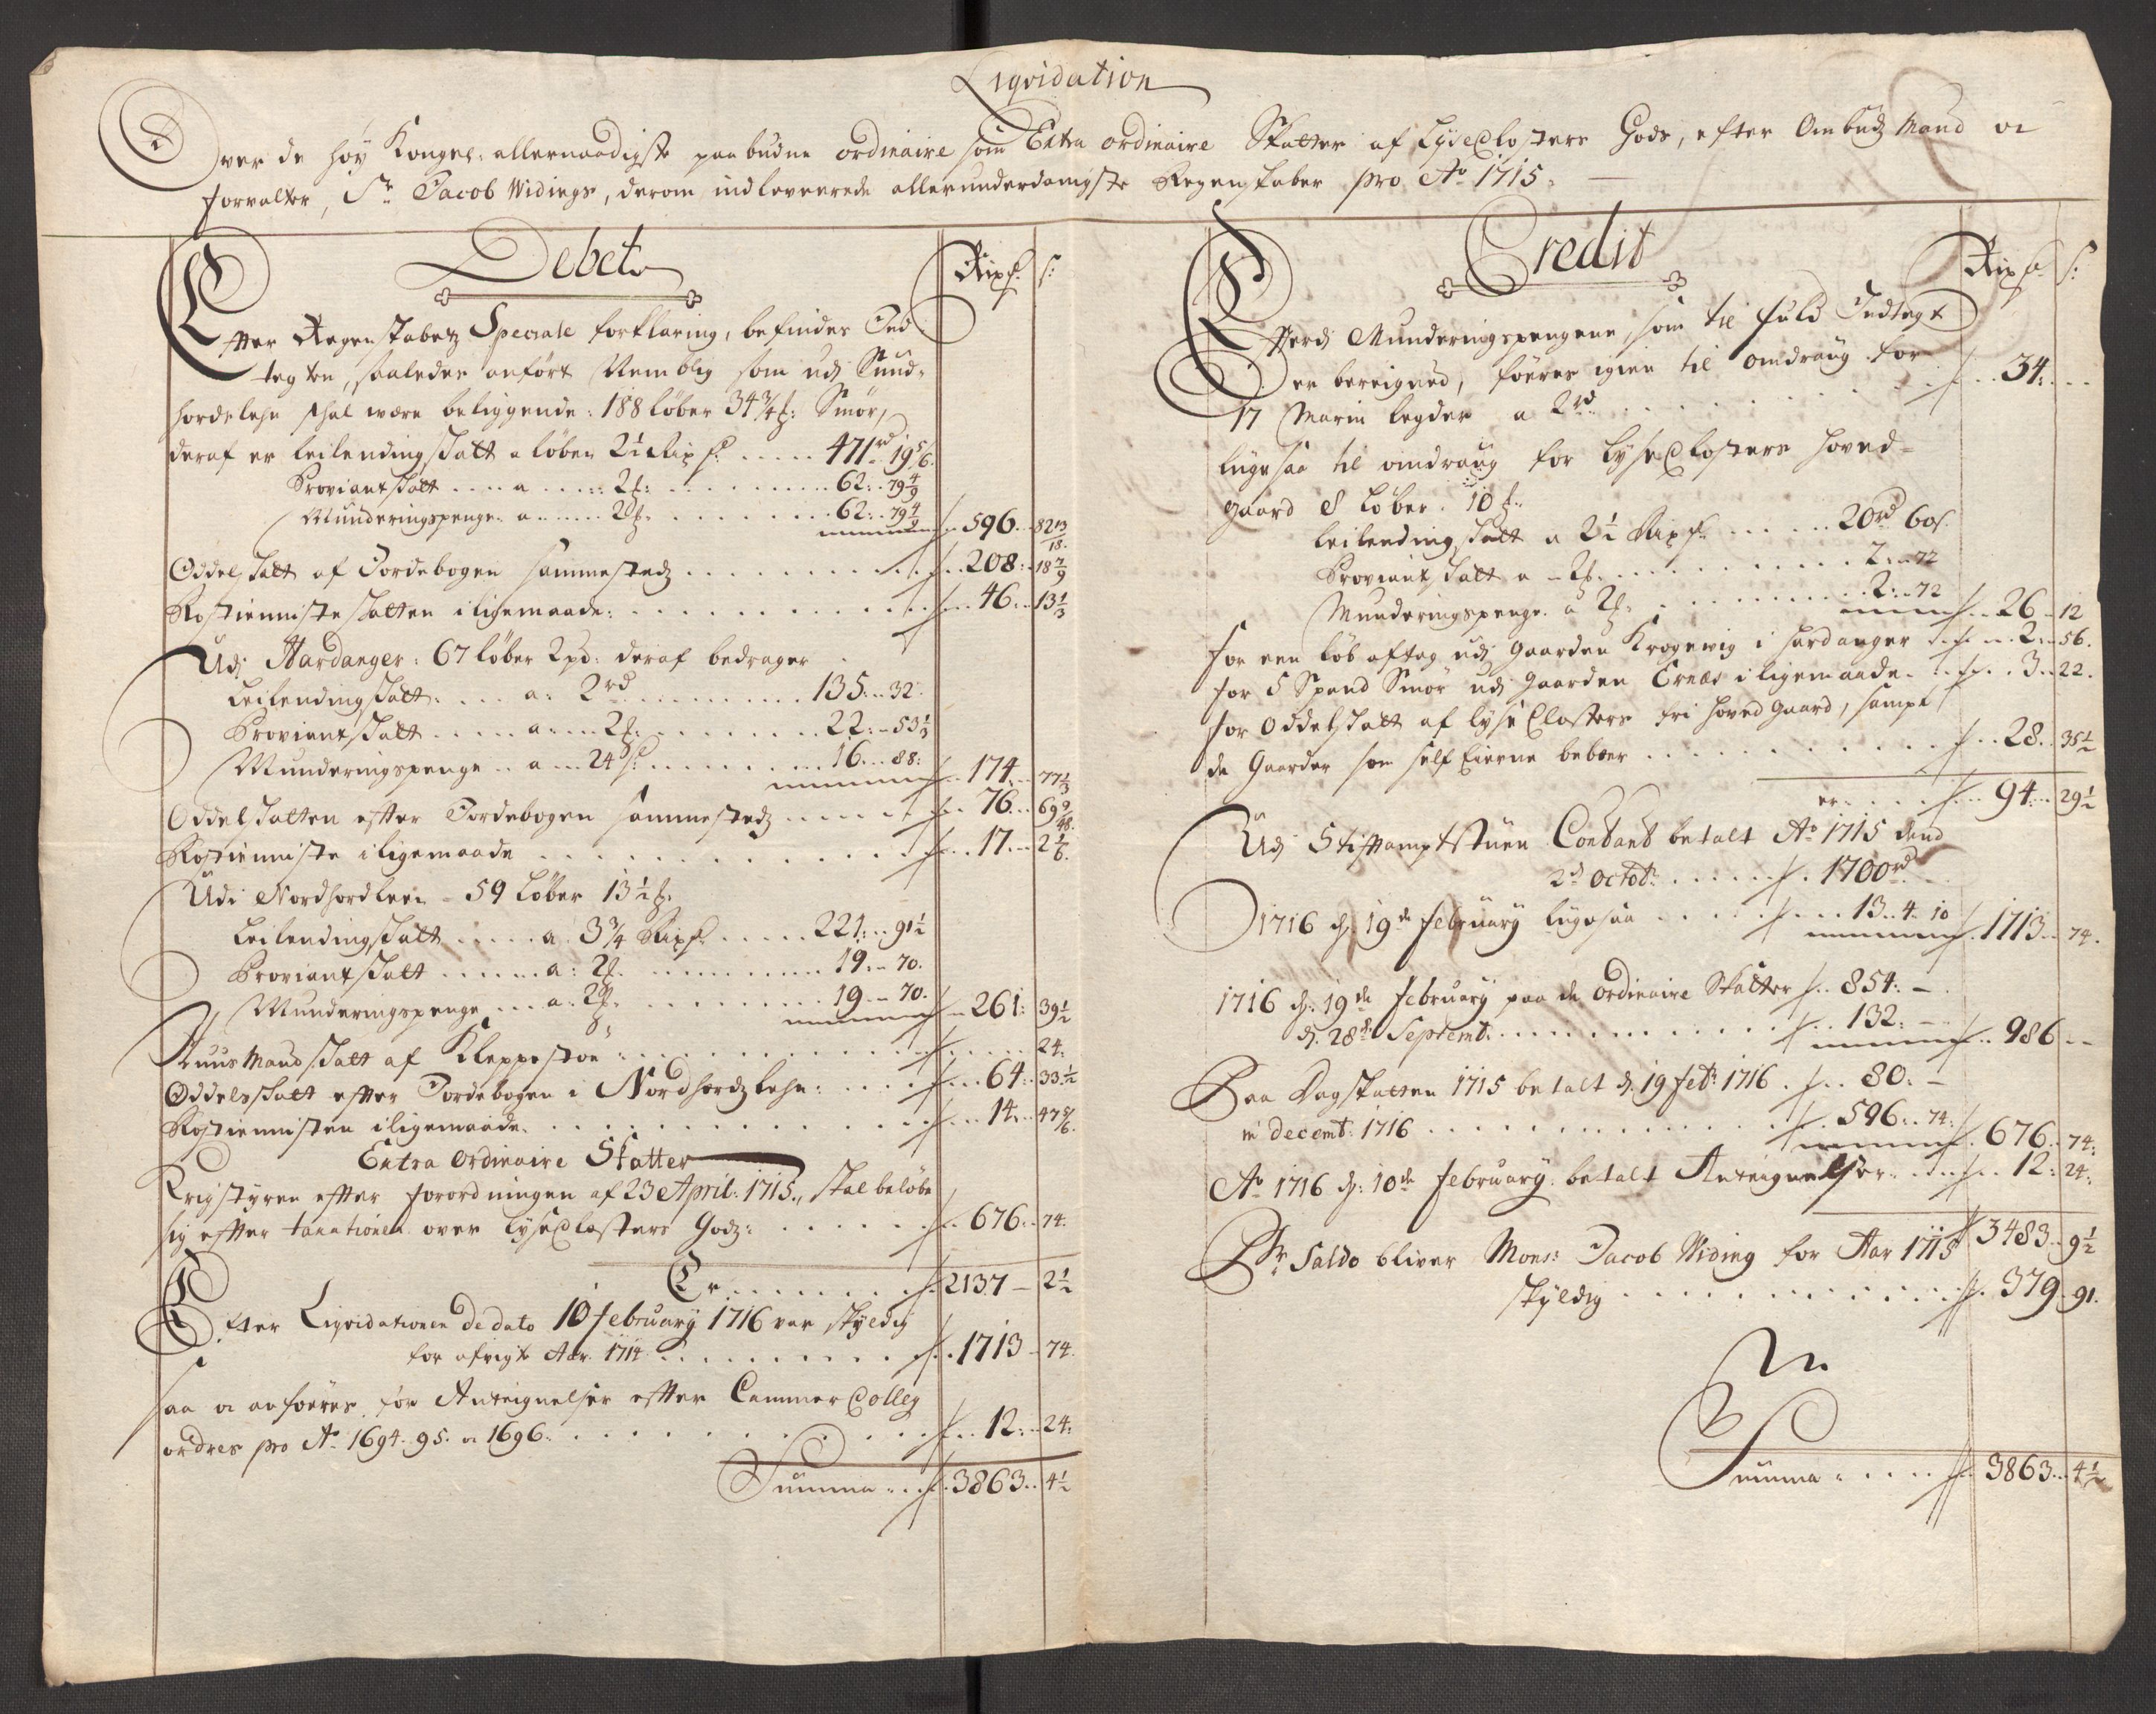 Liqvidation
Over de høy Kongel: allernaadigste paabudne ordinaire som Extra ordinaire Skatter af LyseClosters Gods, efter Ombudz Mand oc
forvalter, Sr. Jacob Widings, derom indleverede allerunderdanigste Regenskaber pro Ao 1715.
Debet Rixd: s:
Efter Regenskabetz Speciale forklaring, befindes Ind
tegten, saaledes anført Nemblig som udj Sund-
hordelehn skal være beliggende: 188 løber 34 3/4 : Smør,
deraf er Leilendingskatt a løben 2 1/2 Rixd: 471rd 19 5/6.
Proviantskatt a 2 : 62: 79 4/9
Munderingspenge a 2 : 62: 79 4/9 596 82 13/18.
Oddelskatt af Jordebogen sammestedz 208: 18 7/9
Rostienniste skatten iligemaade: 46: 13 1/3
Udj Hardanger: 67 løber 2 pd: deraf bedrager
Leilendingskatt: a: 2rd 135: 32.
Proviantskatt a 2 : 22: 53 1/3
Munderingspenge a 24 s: 16: 88: 174: 77 1/3
Oddelskatten efter Jordebogen sammestedz 76: 69 9/48.
Rostienniste iligemaade 17: 2 1/6.
Udi Nordhordlen 59 Løber 13 1/2 :
Leilendingskatt a. 3 3/4 Rixd 221: 91 1/2
Proviantskatt a: 2 19: 70.
Munderingspenge a: 2 19: 70. 261: 39 1/2
Huusmandskatt af Kleppestøe 24:
Oddelsskatt efter Jordebogen i Nordhordlehn: 64: 33 1/2
Rostiennisten iligemaade. 14: 47 5/6.
Extra Ordinaire Skatter
Krigstyren efter forordningen af 23 April: 1715, skal beløbe
sig efter taxationen over LyseClosters Godz: 676: 74.
Er 2137 2 1/2
Efter Liqvidationen de dato 10 february 1716 var skyldig
for afvigte Aar 1714 1713 74.
saa oc anføres for Antegnelser efter Cammer Colleg
ordres pro Ao 1694. 95. oc 1696. 12: 24:
Summa 3863: 4 1/2
Credit Rixd s:
Efterdj Munderingspengene, som til fuld Indtegt
er bereigned, føeres igien til omdraug for
17 Marin legder a 2rd 34:
ligesaa til omdraug for LyseClosters hoved-
gaard 8 Løber. 10 :
Leilendingskatt a 2 1/2 Rixd 20rd 60s.
Proviantskatt a 2 : 2: 72
Munderingspenge a 2 : 2: 72 26 12
for een løb aftag udj gaarden Krogevig i hardanger 2: 56.
for 5 Spand Smør udj gaarden Ernæs iligemaade. 3. 22.
for Oddelskatt af LyseClosters fri hovedgaard, sampt
de Gaarder som self Eierne beboer 28. 35 1/2
er 94: 29 1/2
Udj Stiftamptstuen Contant betalt Ao 1715 dend
2d Octob: 1700rd
1716 d: 19de february ligesaa 13. 4. 10 1713 74.
1716 d: 19de february paa de ordinaire Skatter 854:
d. 28de Septemb: 132: 986
Paa Dagskatten 1715 betalt d: 19 feb: 1716 80:
in decemb: 1716 596: 74: 676. 74:
Ao 1716 d: 10de february betalt Antegnelser 12: 24:
3483 9 1/2
Pr Saldo bliver Monsr: Jacob Widing for Aar 1715
skyldig 379 91.
Summa 3863 4 1/2